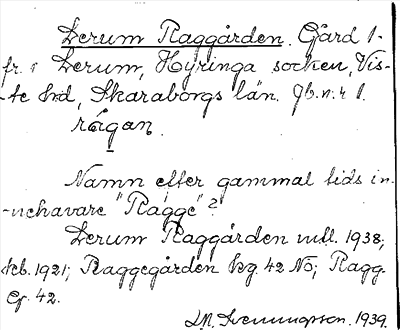 Lerum Raggården. Gård 1.
fr. i Lerum, Hyringa socken, Vis-
-te hd, Skaraborgs län. Jb. n:r 1.
rágan.
Namn efter gammal tids in-
-nehavare "Ragge"?
Lerum Raggården mtl. 1938;
1921; Raggegården kg. 42 No; Ragg-
eg. 42.
Svenungson. 1939.